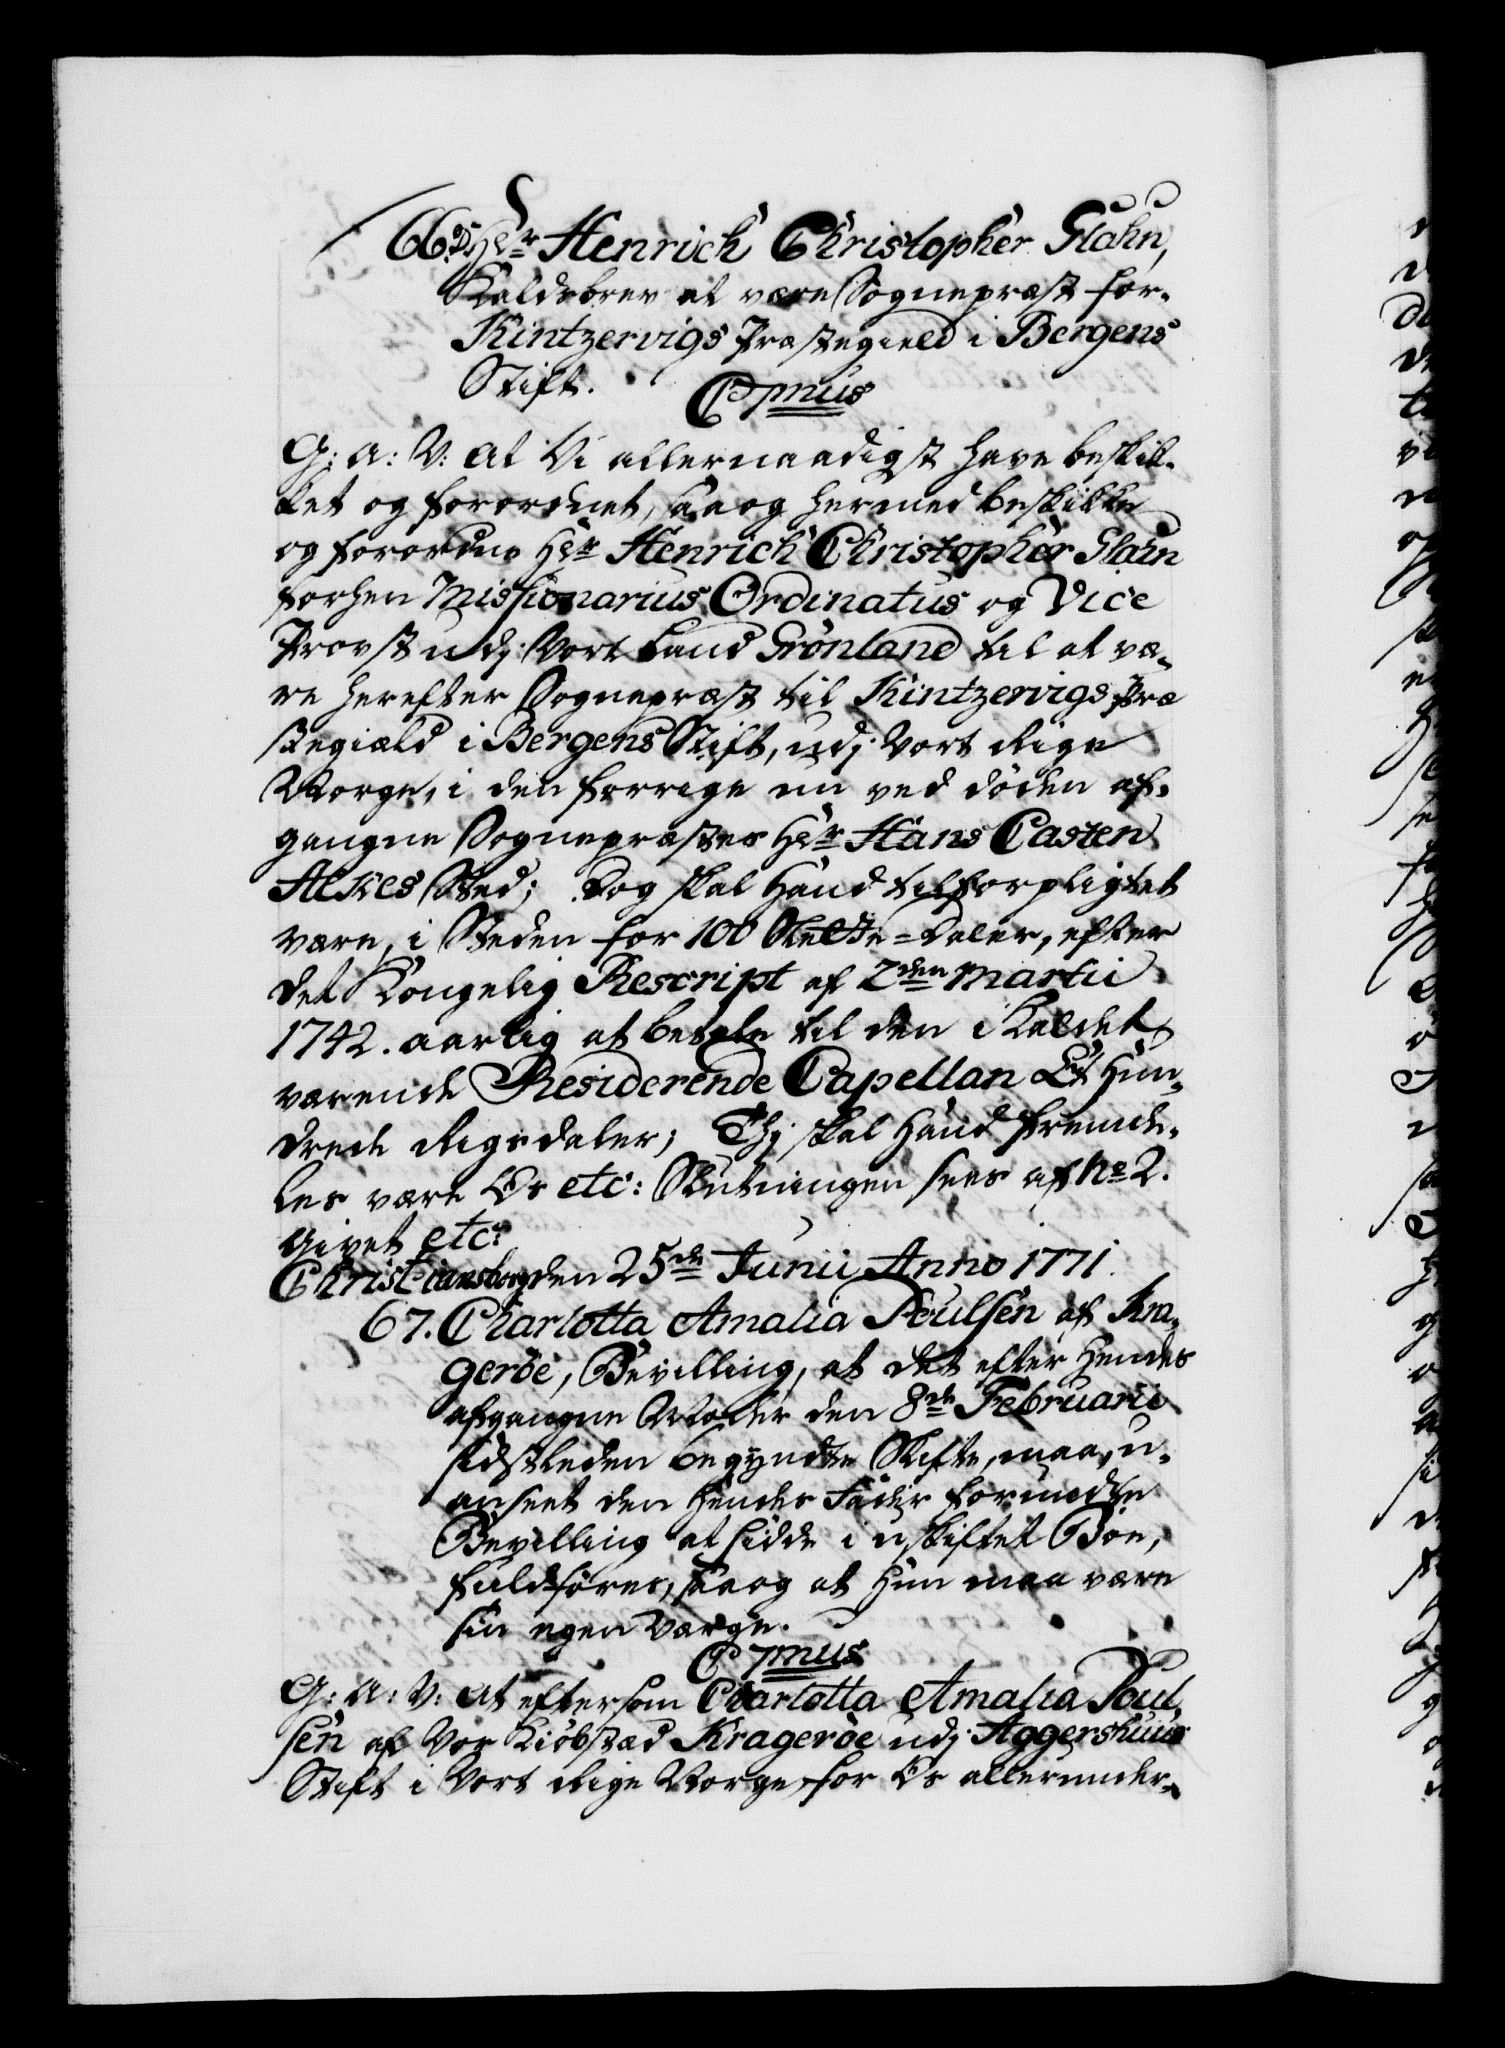 66. Hr Henrich Christopher Glahn,
Kaldsbrev at være Sognepræst for
Kintzervigs Præstegield i Bergens
Stift.
C 7mus
G: A: V: At Vi allernaadigst have beskik-
ket og forordnet, saa og hermed beskikke
og forordne Hr Henrich Christopher Glahn
forhen Missionarius Ordinatus og Vice
Provst udj Vort Land Grönland til at væ-
re herefter Sognepræst til Kintzervigs Præ
stegiæld i Bergens Stift, udj Vort Rige
Norge, i den forrige nu ved døden af-
gangne Sognepræstes Hr Hans Casten
Atkes Sted; Dog skal Hand tilforpligtet
være, i Steden for 100 Slette-Daler, efter
det Kongelig Rescript af 2den Martii
1742. aarlig at betale til den i Kaldet
værende Residerende Capellan Et Hun-
drede Rigsdaler; Thj skal Hand fremde-
les være Os etc: Slutningen sees af No 2.
Givet etc:
Christiansborg den 25de Junii Anno 1771.
67. Charlotta Amalia Poulsen af Kra-
geröe, Bevilling, at det efter Hendes
afgangne Moder den 8de Februarii
sidstleden begyndte Skifte, maa, u-
anseet den Hendes Fader formeente
Bevilling at sidde i uskiftet Boe,
fuldføres, saa og at Hun maa være
sin egen Værge.
C 7mus
G: A: V: At eftersom Charlotta Amalia Poul-
sen af Vor Kiöbstæd Krageröe udj Aggershuus
Stift i Vort Rige Norge, for Os allerunder-